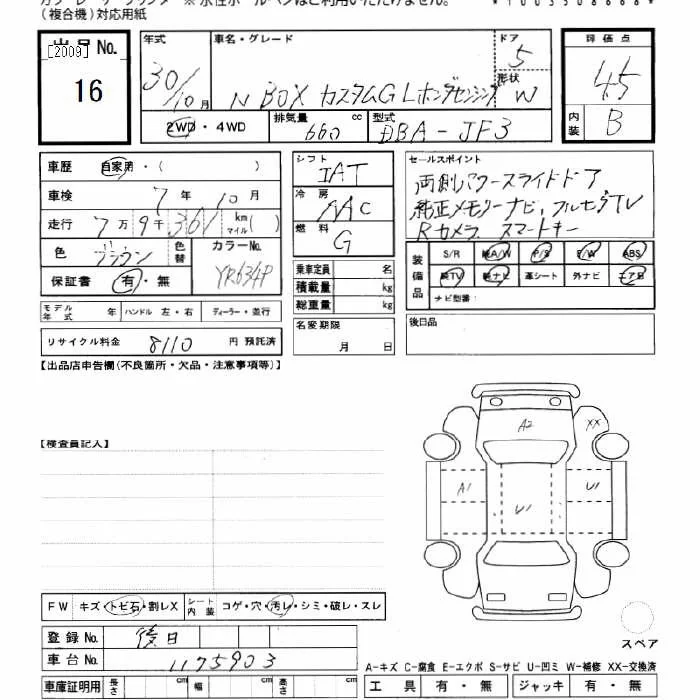 (複合機)対応用紙
出品No.
[2009]
16
年式
30/10月
車名・グレード
N BOX カスタムG Lホンダセンシング
ドア
5
形状
W
評価点
4.5
内装
B
2WD・4WD
排気量
660 cc
型式
DBA-JF3
車歴 自家用・( )
車検 7年10月
走行 7万9千361 km マイル( )
色 ブラウン
色替
カラーNo.
YR634P
保証書 有・無
シフト
IAT
冷房
AAC
燃料
G
セールスポイント
両側パワースライドドア
純正メモリーナビ、フルセグTV
Rカメラ スマートキー
装備品
S/R 純A/W P/S P/W ABS
純TV 純ナビ 革シート 外ナビ エアB
ナビ型番:
乗車定員 名
積載量 kg
総重量 kg
モデル年式 年 ハンドル 左・右 ディーラー・並行
名変期限
月 日
後日品
リサイクル料金 8110 円 預託済
【出品店申告欄(不良箇所・欠品・注意事項等)】
【検査員記入】
A2
XX
A1
U1
U1
FW キズ・トビ石・割レX
シート内装 コゲ・穴・汚レ・シミ・破レ・スレ
登録No. 後日
車台No. 1175903
スペア
A-キズ C-腐食 E-エクボ S-サビ U-凹ミ W-補修 XX-交換済
車庫証明用 長さ cm 幅 cm 高さ cm
工具 有・無 ジャッキ 有・無